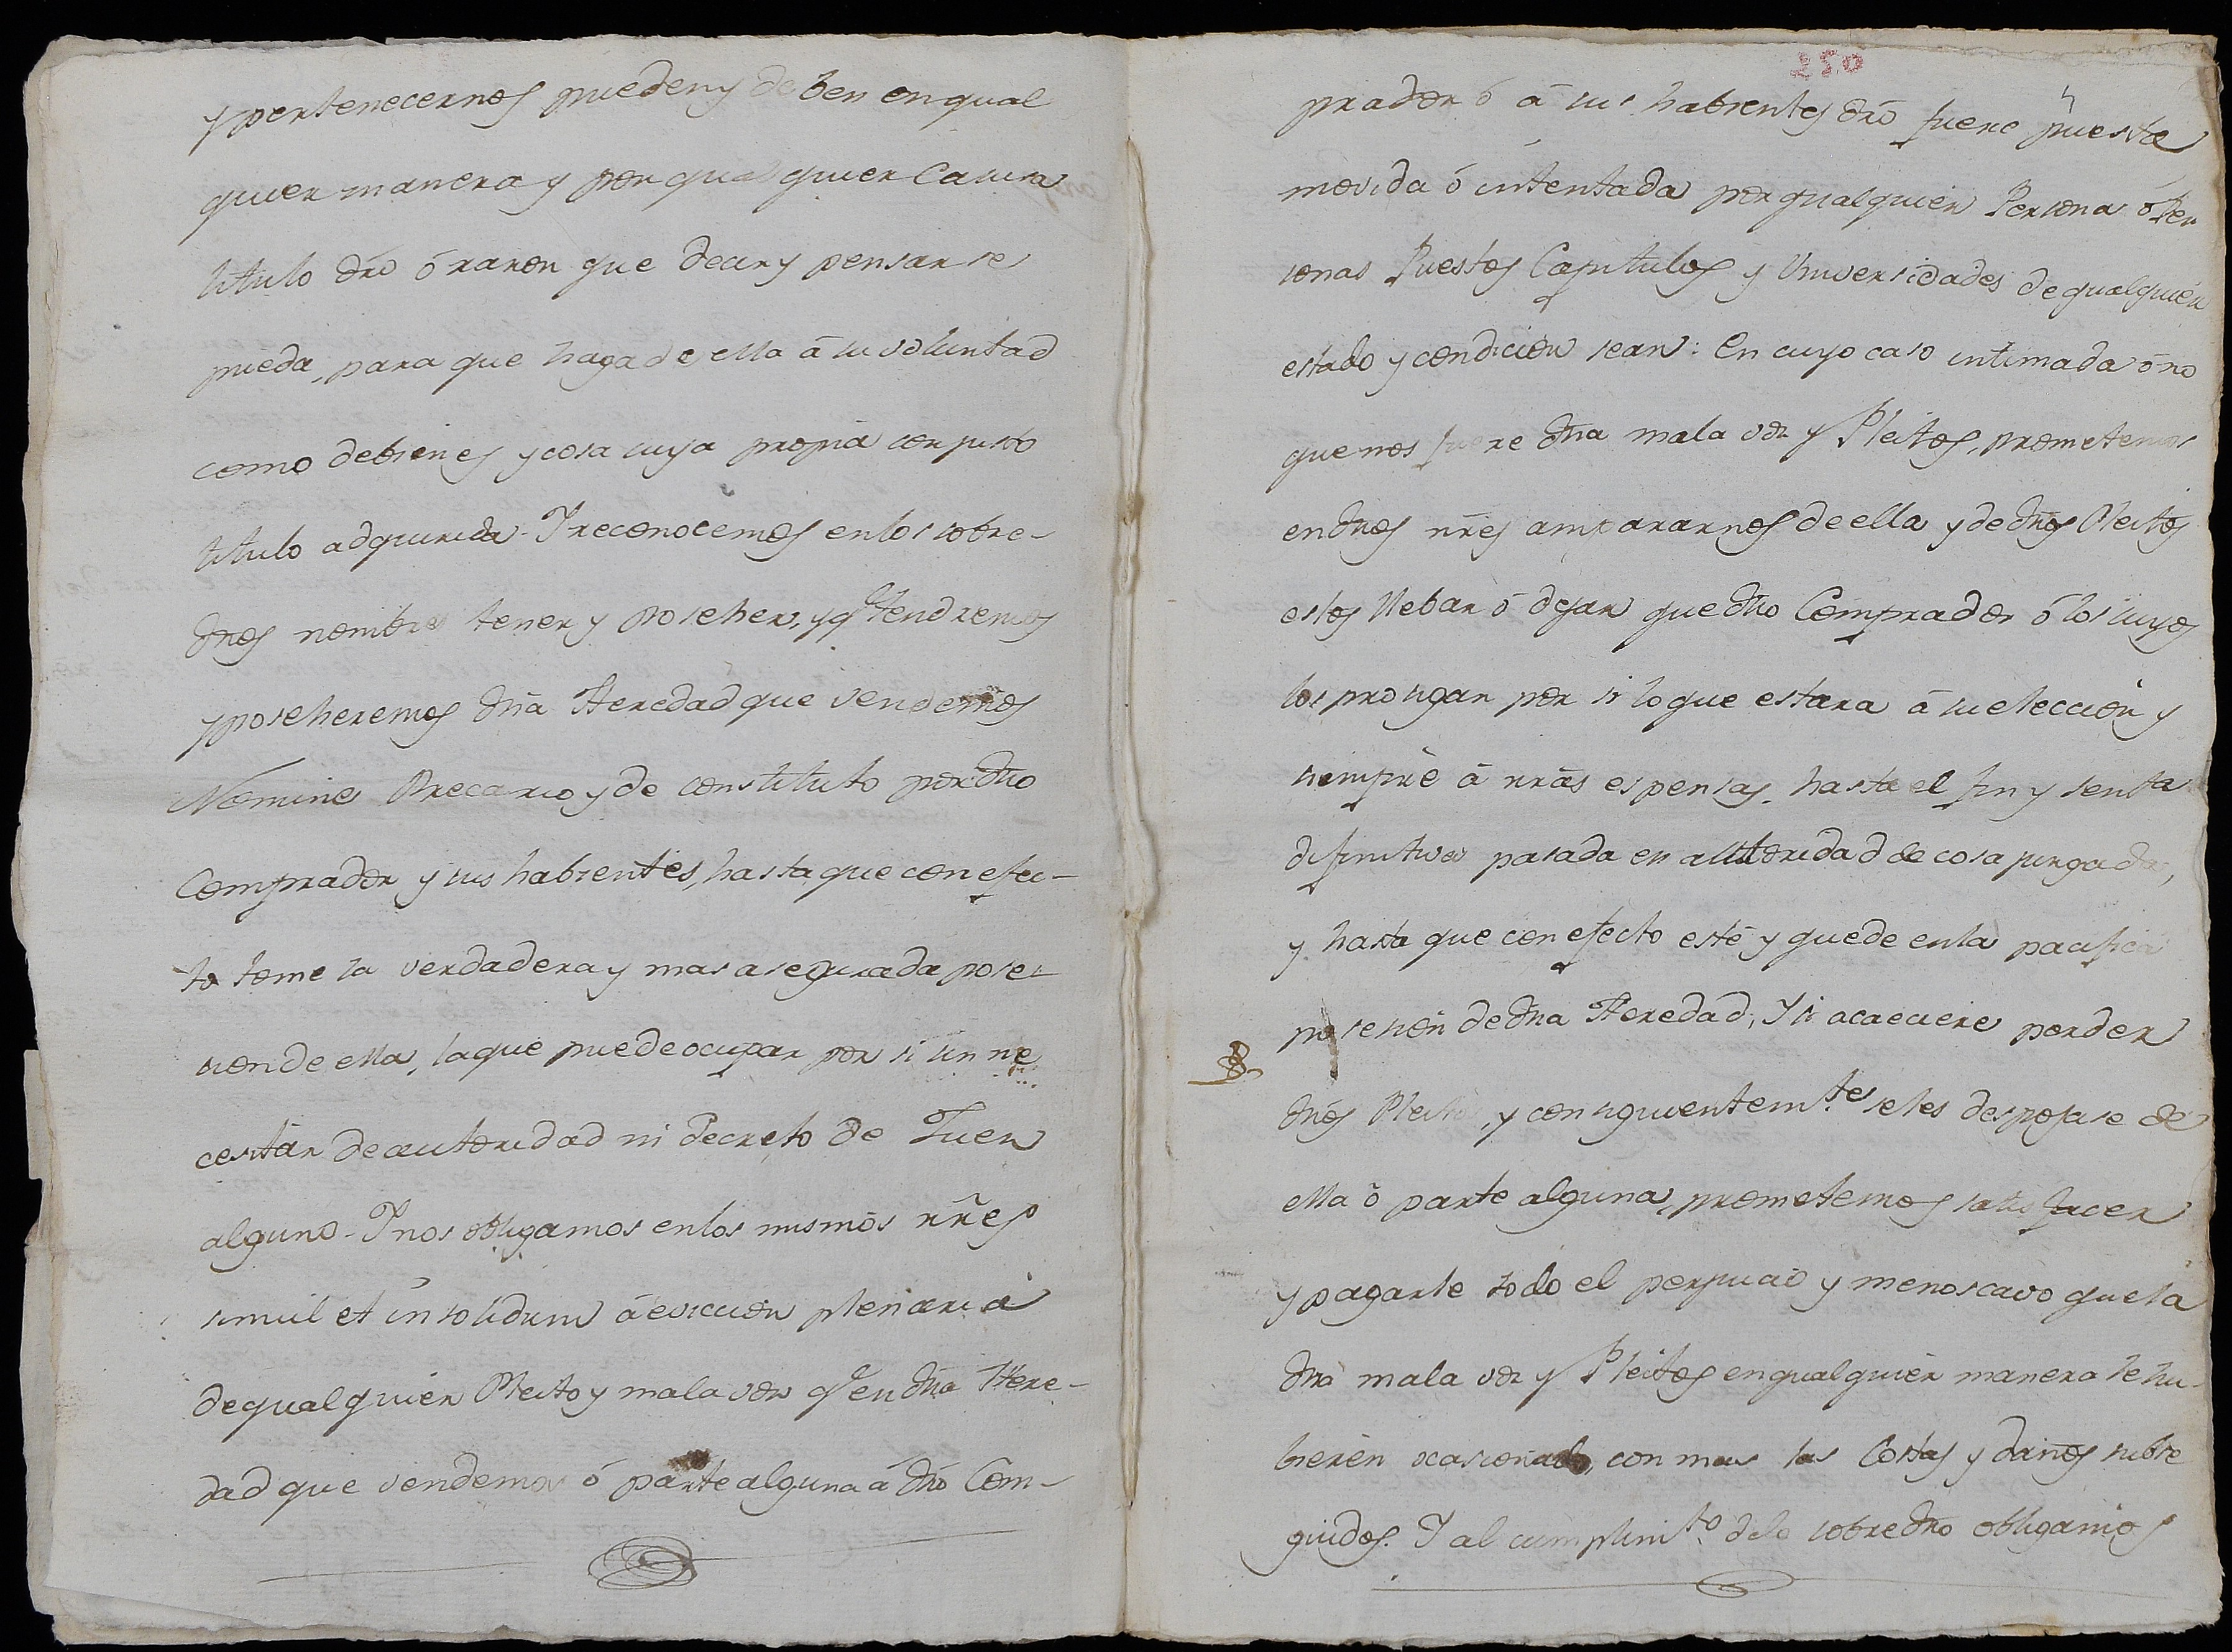 y pertenecernos pueden y deben en qual
quier manera y por qualquier Causa
titulo dr̃o ó razon que decir y pensar se
pueda, para que haga de ella á su voluntad
como de bienes y cosa suya propia con justo
titulo adquirida. Y reconocemos en los sobre-
dh̃os nombres tener y poseher, y q.e tendremos
y poseheremos dh̃a Heredad que vendemos
Nomine Precario y de constituto por dh̃o
Comprador y sus habientes, hasta que con efec-
to tome la verdadera y mas asegurada pose-
sion de ella, la que puede ocupar por si sin ne
cesitar de autoridad ni Decreto de Juez
alguno. Y nos obligamos en los mismos nr̃es
simul et in solidum á eviccion plenaria
de qualquier Pleito y mala voz q.e en dh̃a Here-
dad que vendemos ó parte alguna á dh̃o Com-
250
prador ó á sus habientes dr̃o fuere puesta
movida ó intentada por qualquier Persona ó Per
sonas Puestos Capitulos y Universidades de qualquier
estado y condicion sean: En cuyo caso intimada ó no
que nos fuere dh̃a mala voz y Pleitos, prometemos
en dh̃os nr̃es ampararnos de ella y de dh̃os Pleitos
estos llebar ó dejar que dh̃o Comprador ó los suyos
los prosigan por si lo que estara á su eleccion y
siempre á nr̃as espensas, hasta el fin y senta
difinitiva pasada en autoridad de cosa juzgada,
y hasta que con efecto esté y quede en la pacifica
posesion de dh̃a Heredad, Y si acaeciere perder
dh̃os Pleitos, y consiguientem.te se les despojase de
ella ó parte alguna, prometemos satisfacer
y pagarle todo el perjuicio y menoscavo que la
dh̃a mala voz y Pleitos en qualquier manera le hu-
bieren ocasionado, con mas las Costas y daños subse
guidos. Y al cumplim.to de lo sobredh̃o obligamos